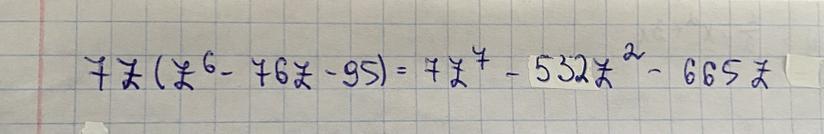 7z(z⁶ - 76z - 95) = 7z⁷ - 532z² - 665z